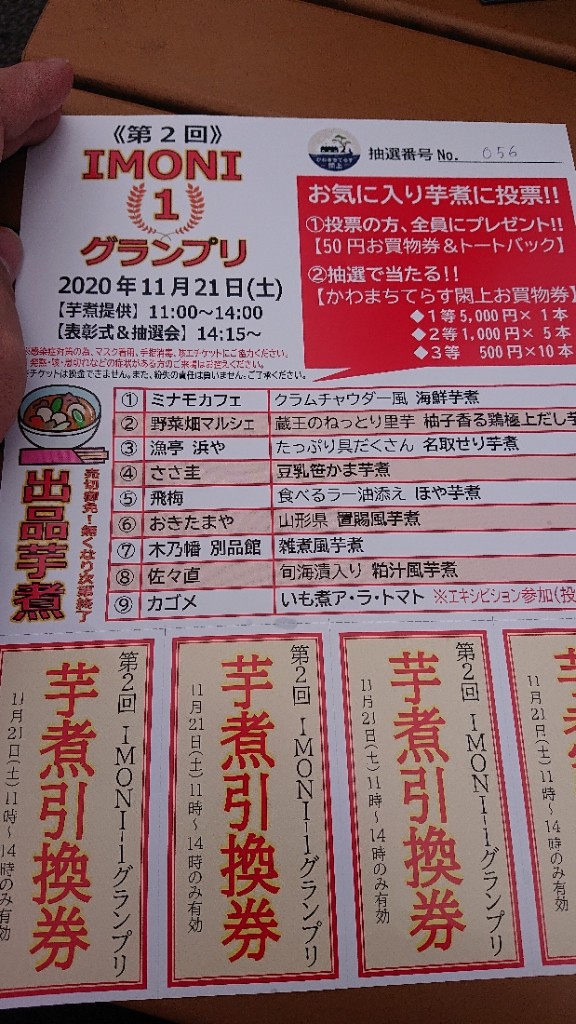 《第２回》
IMONI
1
グランプリ
2020年11月21日(土)
【芋煮提供】11:00～14:00
【表彰式＆抽選会】14:15～
※感染症対策の為、マスク着用、手指消毒、咳エチケットにご協力ください。
発熱・咳・息切れなどの症状がある方のご来場はお控えください。
チケットは換金できません。また、紛失の責任は負いません。ご了承ください。
かわまちてらす
閖上
抽選番号 No. 056
お気に入り芋煮に投票!!
①投票の方、全員にプレゼント!!
【50円お買物券＆トートバック】
②抽選で当たる!!
【かわまちてらす閖上お買物券】
◆１等5,000円× １本
◆２等1,000円× ５本
◆３等 500円×10本
出品芋煮
売切御免！無くなり次第終了
① ミナモカフェ クラムチャウダー風 海鮮芋煮
② 野菜畑マルシェ 蔵王のねっとり里芋 柚子香る鶏極上だし芋
③ 漁亭 浜や たっぷり具だくさん 名取せり芋煮
④ ささ圭 豆乳笹かま芋煮
⑤ 飛梅 食べるラー油添え ほや芋煮
⑥ おきたまや 山形県 置賜風芋煮
⑦ 木乃幡 別品館 雑煮風芋煮
⑧ 佐々直 旬海漬入り 粕汁風芋煮
⑨ カゴメ いも煮ア・ラ・トマト ※エキシビション参加(投
第２回 IMONI-1グランプリ
芋煮引換券
11月21日(土)11時～14時のみ有効
第２回 IMONI-1グランプリ
芋煮引換券
11月21日(土)11時～14時のみ有効
第２回 IMONI-1グランプリ
芋煮引換券
11月21日(土)11時～14時のみ有効
11月21日(土)11時～14時のみ有効